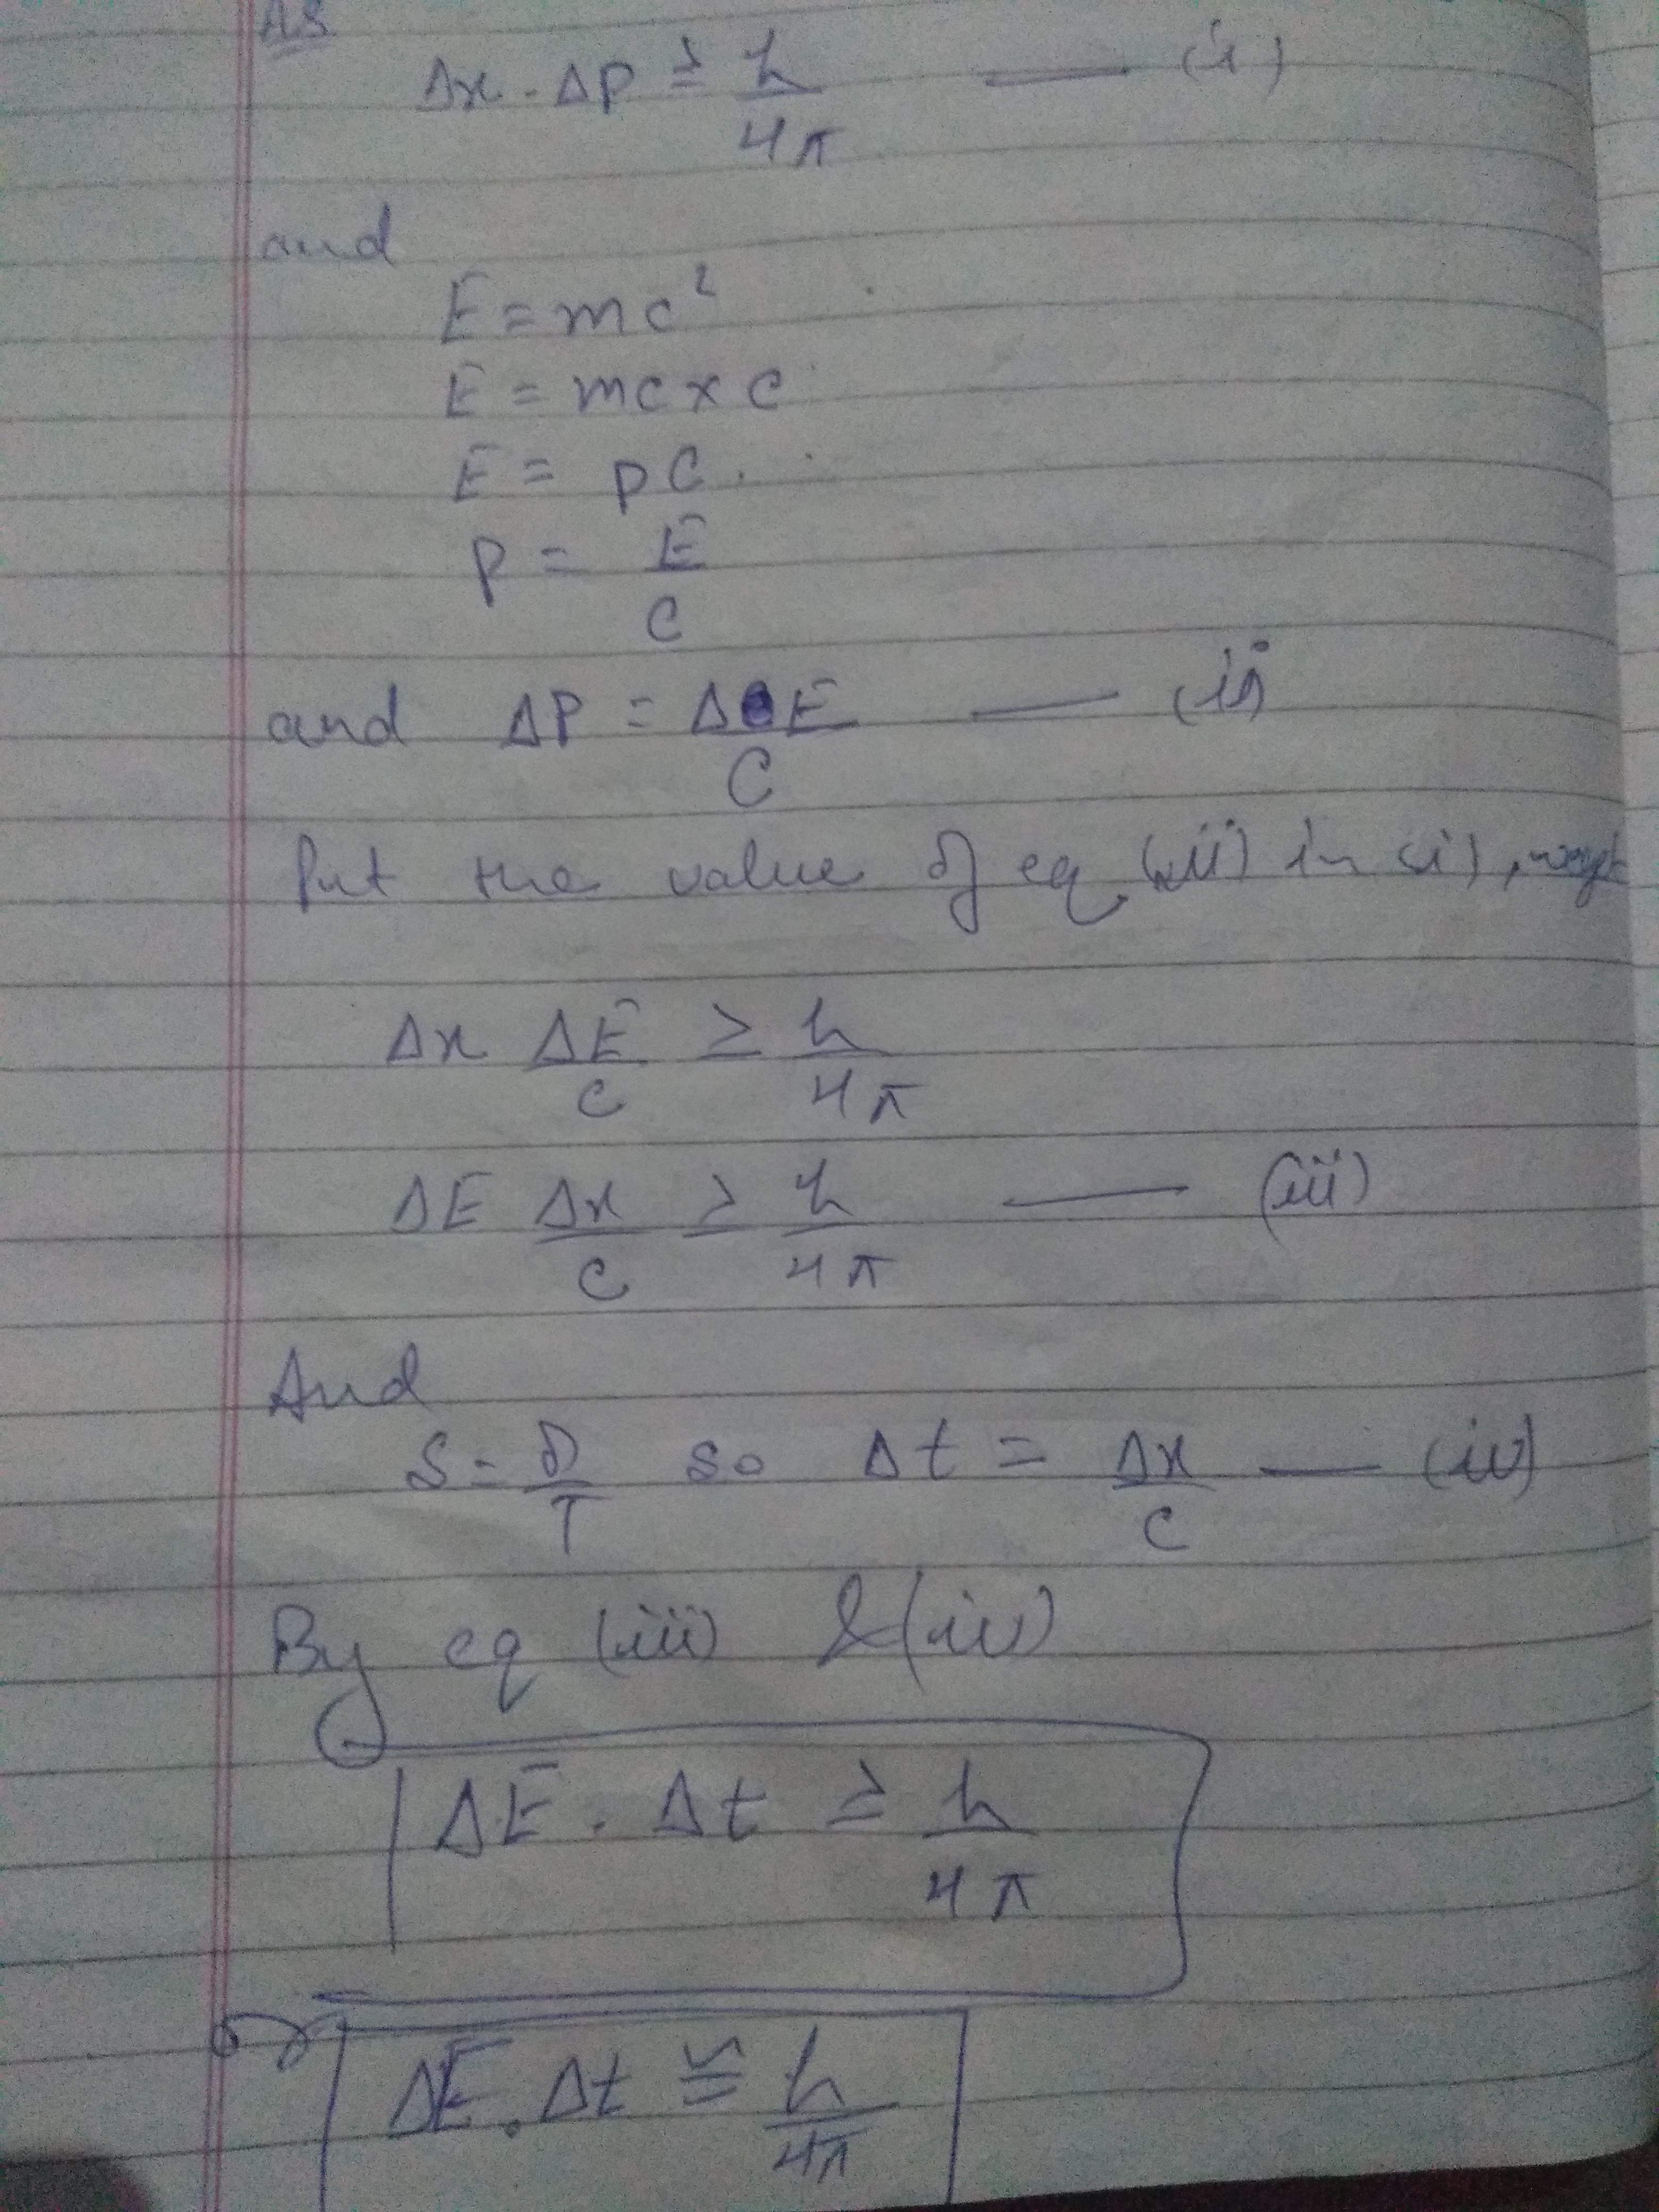 As
Δx . Δp ≥ h/4π —— (i)
and
E = mc²
E = mc x c
E = pc.
p = E/c
and ΔP = ΔE/C —— (ii)
Put the value of eq (ii) in (i), we get
Δx ΔE/c ≥ h/4π
ΔE Δx/c ≥ h/4π —— (iii)
And
S = D/T so Δt = Δx/c —— (iv)
By eq (iii) & (iv)
ΔE . Δt ≥ h/4π
ΔE . Δt ≌ h/4π